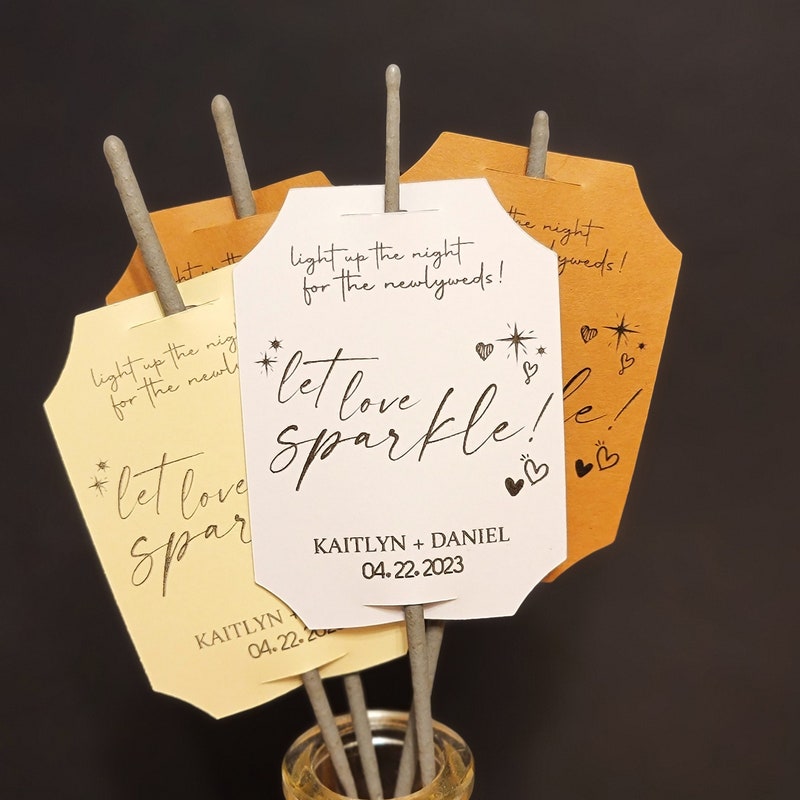 light up the night
for the newlyweds!
let love
sparkle!
KAITLYN + DANIEL
04.22.2023
light up the nigh
for the newlyw
let love
spar
KAITLYN +
04.22.202
light up the
the night
lyweds!
le!